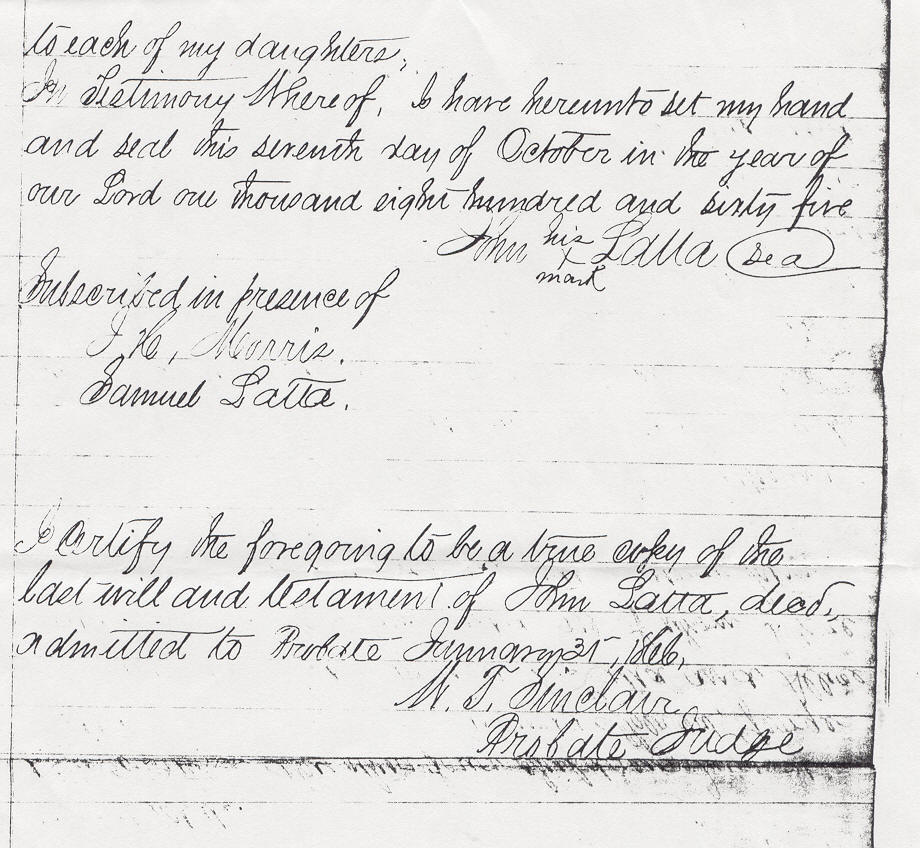 to each of my daughters,
In Testimony Whereof, I have hereunto set my hand
and seal this seventh day of October in the year of
our Lord one thousand eight hundred and sixty five
John his Latta sea
x
mark
Subscribed in presence of
J. H, Morris.
Samuel Latta.
I certify the foregoing to be a true copy of the
last will and testament of John Latta, decd,
admitted to Probate January 31, 1866,
W. T. Sinclair
Probate Judge